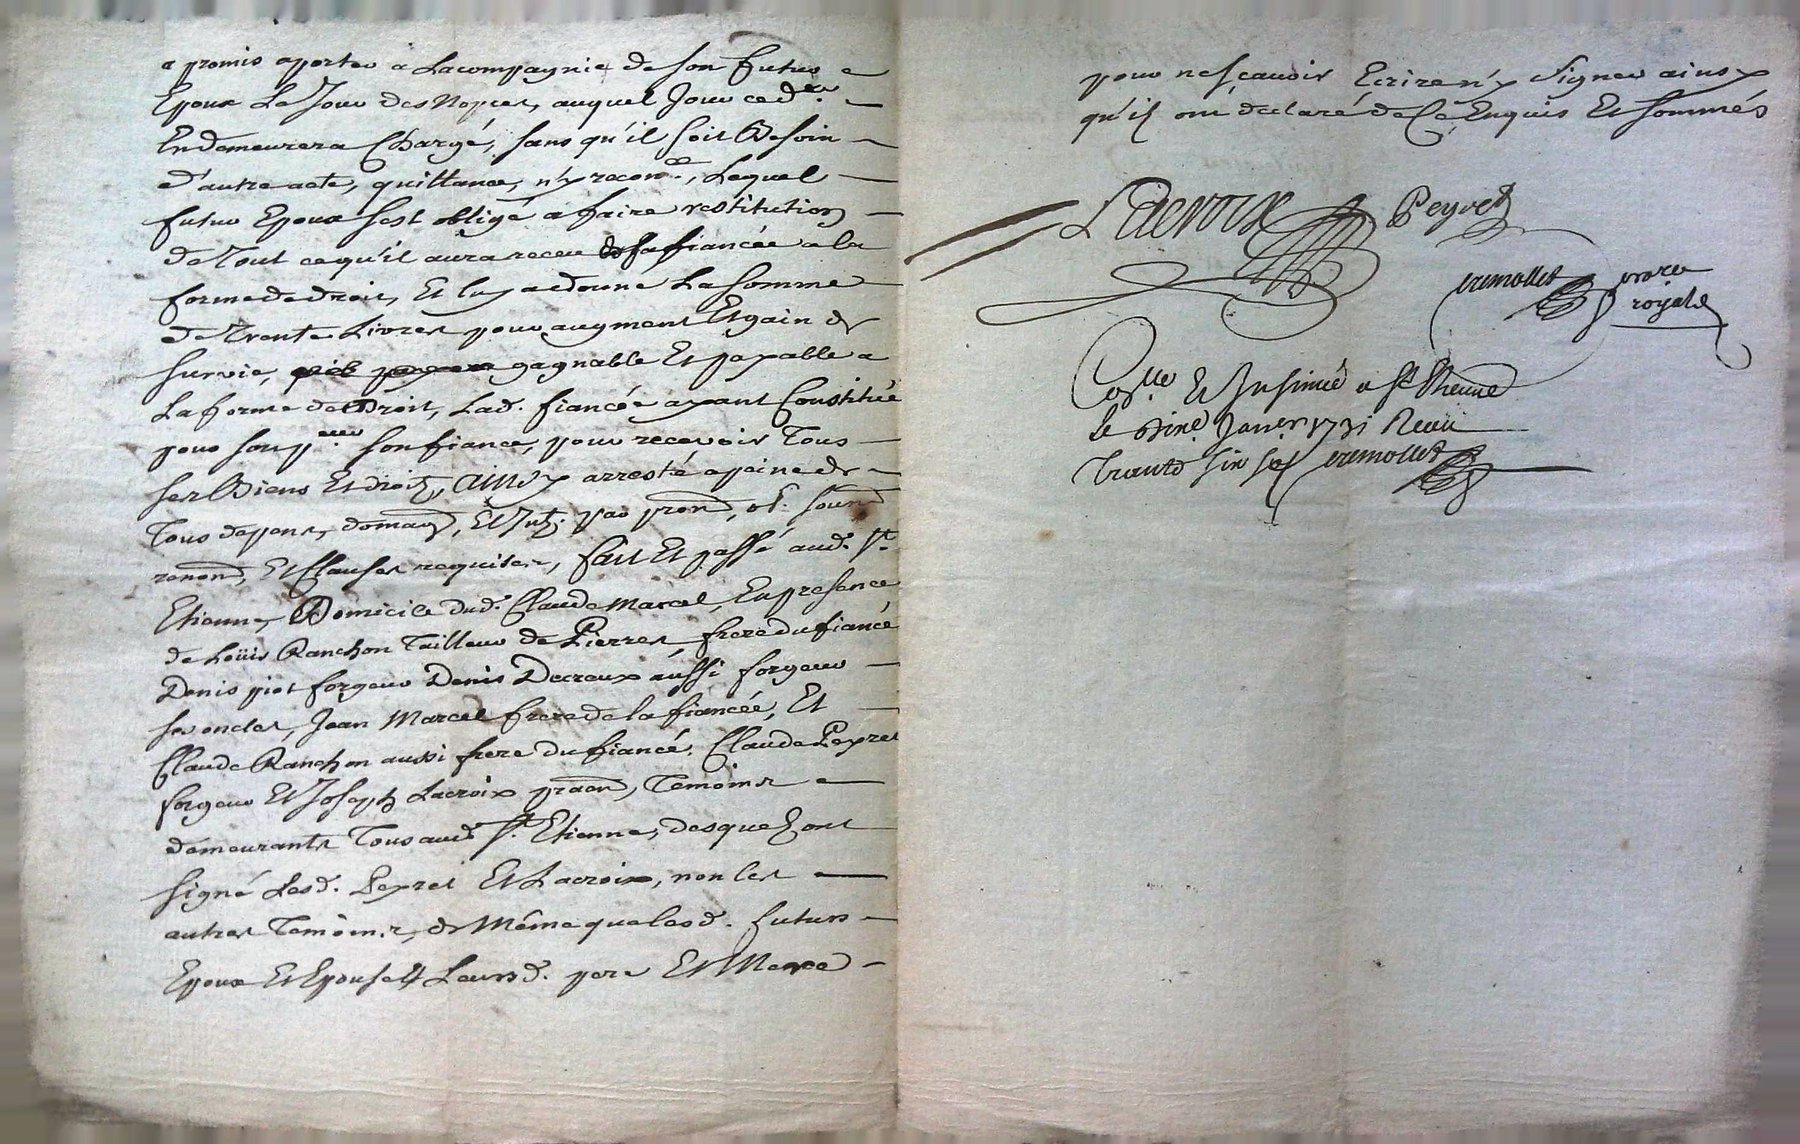 a promis aporter a La compagnie de son futur
Epoux Le Jour des Nopces, auquel Jour ced. der
En demeurera Chargé, sans qu'il soit Besoin
d'autre acte, quittance, n'y recon.ce, Lequel
futur Epoux s'est obligé a faire restitution
de Tout ce qu'il aura receu de sa fiancée a la
forme de droit, Et luy a donne La somme
de Trente Livres pour augment Et gain de
survie, gagnable Et payable a
La forme de Droit, Lad. fiancée ayant Constitué
pour son p.eur son fiance, pour recevoir Tous
ses Biens Et droits, Ainsy arresté a peine de
Tous depens, domag, Et Int. par prom, ob. soum
renon, Et Clauses requises, fait Et passé aud. St.
Etienne, Domicile dud. Claude Marcel, En presence
de Loüis Ranchon Tailleur de Pierres, frere du fiancé
Denis piot forgeur Denis Decreux aussi forgeur
ses oncles, Jean Marcel frere de la fiancée, Et
Claude Ranchon aussi frere du fiancé. Claude Peyret
forgeur Et Joseph Lacroix prati., Temoins
demeurants Tous aud. St. Etienne, desquels ont
signé Lesd. Peyret Et Lacroix, non les
autres Temoins, de Même que lesd. futurs
Epoux Et Epouse Leursd. pere Et Mere
pour ne sçavoir Ecrire n'y Signer ainsy
qu'ils ont declaré de Ce Enquis Et sommés
Lacroix Peyret
Tremollet notaire
royal
Con.llé Et Insinué a St. Etienne
le Janer 1731 Receu
Trente six s. Tremollet